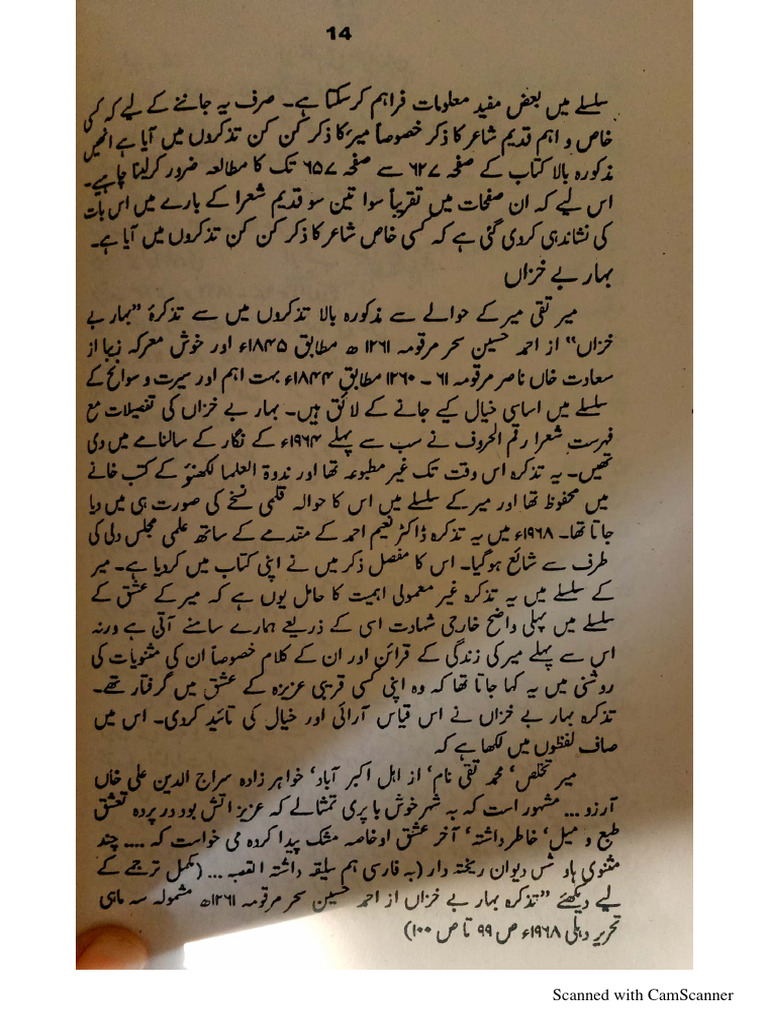 14
سلسلے میں بعض مفید معلومات فراہم کر سکتا ہے۔ صرف یہ جاننے کے لیے کہ کسی
خاص و اہم قدیم شاعر کا ذکر خصوصاً میر کا ذکر کن کن تذکروں میں آیا ہے انھیں
مذکورہ بالا کتاب کے صفحہ ۶۲۷ سے صفحہ ۶۵۷ تک کا مطالعہ ضرور کرلینا چاہیے۔
اس لیے کہ ان صفحات میں تقریباً سوا تین سو قدیم شعرا کے بارے میں اس بات
کی نشاندہی کردی گئی ہے کہ کسی خاص شاعر کا ذکر کن کن تذکروں میں آیا ہے۔
بہار بے خزاں
میر تقی میر کے حوالے سے مذکورہ بالا تذکروں میں سے تذکرۂ ”بہار بے
خزاں“ از احمد حسین سحر مرقومہ ۱۲۶۱ ھ مطابق ۱۸۴۵ء اور خوش معرکہ زیبا از
سعادت خاں ناصر مرقومہ ۶۱ ۔ ۱۲۶۰ مطابق ۱۸۴۴ء بہت اہم اور سیرت و سوانح کے
سلسلے میں اساسی خیال کیے جانے کے لائق ہیں۔ بہار بے خزاں کی تفصیلات مع
فہرست شعرا رقم الحروف نے سب سے پہلے ۱۹۶۴ء کے نگار کے سالنامے میں دی
تھیں۔ یہ تذکرہ اس وقت تک غیر مطبوعہ تھا اور ندوۃ العلما لکھنؤ کے کتب خانے
میں محفوظ تھا اور میر کے سلسلے میں اس کا حوالہ قلمی نسخے کی صورت ہی میں دیا
جاتا تھا۔ ۱۹۶۸ء میں یہ تذکرہ ڈاکٹر نعیم احمد کے مقدمے کے ساتھ علمی مجلس دلی کی
طرف سے شائع ہوگیا۔ اس کا مفصل ذکر میں نے اپنی کتاب میں کردیا ہے۔ میر
کے سلسلے میں یہ تذکرہ غیر معمولی اہمیت کا حامل یوں ہے کہ میر کے عشق کے
سلسلے میں پہلی واضح خارجی شہادت اسی کے ذریعے ہمارے سامنے آتی ہے ورنہ
اس سے پہلے میر کی زندگی کے قرائن اور ان کے کلام خصوصاً ان کی مثنویات کی
روشنی میں یہ کہا جاتا تھا کہ وہ اپنی کسی قریبی عزیزہ کے عشق میں گرفتار تھے۔
تذکرہ بہار بے خزاں نے اس قیاس آرائی اور خیال کی تائید کردی۔ اس میں
صاف لفظوں میں لکھا ہے کہ
میر تخلص‘ محمد تقی نام‘ از اہل اکبر آباد‘ خواہر زادہ سراج الدین علی خاں
آرزو ... مشہور است کہ بہ شہر خوش با پری تمثالے کہ عزیز اتش بود در پردہ تعشق
طبع و میل‘ خاطر داشتہ‘ آخر عشق او خاصہ مشک پیدا کردہ می خواست کہ .... چند
مثنوی ہاو شس دیوان ریختہ دار (بہ فارسی ہم سلیقہ داشتہ القصہ ... (مکمل ترجمے کے
لیے دیکھئے ”تذکرہ بہار بے خزاں از احمد حسین سحر مرقومہ ۱۲۶۱ھ مشمولہ سہ ماہی
تحریر دہلی ۱۹۶۸ء ص ۹۹ تا ص ۱۰۰)
Scanned with CamScanner